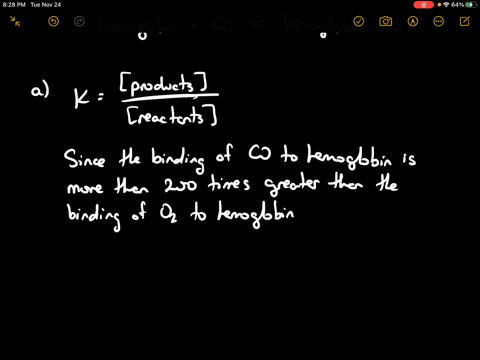 8:28 PM Tue Nov 24
64%
hemoglobin + CO ⇌
a) K = [products]
[reactants]
Since the binding of CO to hemoglobin is
more then 200 times greater then the
binding of O2 to hemoglobin